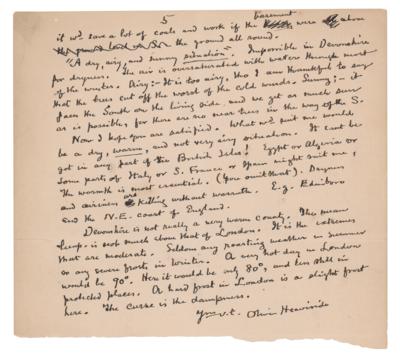 5
it wd save a lot of coals and work if the basement were above
the ground all round.
"A dry, airy, and sunny situation". Impossible in Devonshire
for dryness. The air is oversaturated with water through most
of the winter. Airy:- It is too airy, tho I am thankful to say
that the trees cut off the worst of the cold winds. Sunny;- it
faces the South on the living side, and we get as much sun
as is possible, for there are no near trees in the way of the S.
Now I hope you are satisfied. What wd suit me would
be a dry, warm, and not very airy situation. It cant be
got in any part of the British Isles! Egypt or Algeria or
some parts of Italy or S. France or Spain might suit me,
The warmth is most essential. (You omit that). Dryness
and airiness are killing without warmth. E.g. Edinboro
and the N.E. coast of England.
Devonshire is not really a very warm county. The mean
temp. is not much above that of London. It is the extremes
that are moderate. Seldom any roasting weather in summer
or any severe frosts in winter. A very hot day in London
would be 90°. Here it would be only 80°, and less still in
protected places. A hard frost in London is a slight frost
here. The curse is the dampness.
Yrs v.t. Oliver Heaviside